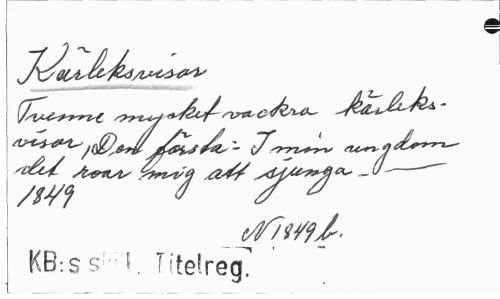 Kärleksvisor
Tvenne mycket vackra kärleks-
visor, Den första: I min ungdom
det roar mig att sjunga - —
1849
N 1849 b.
KB:s Titelreg.